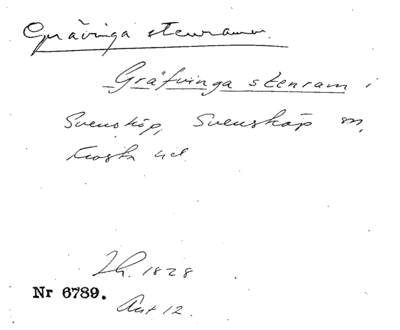 Grävinga stenramm.
Gräfvinga stenram i
Svensköp, Svensköp sn,
Frosta hd.
Lh. 1828
Nr 6789.
Ant 12.